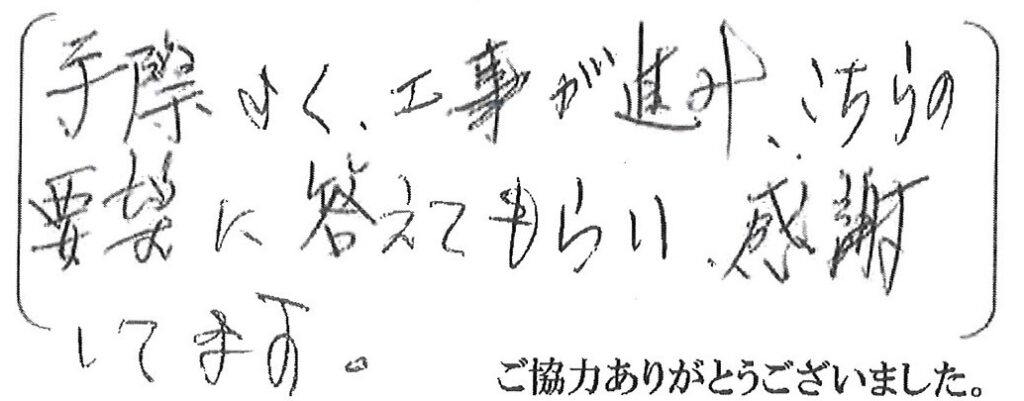 手際よく、工事が進み、こちらの
要望に答えてもらい、感謝
してます。
ご協力ありがとうございました。